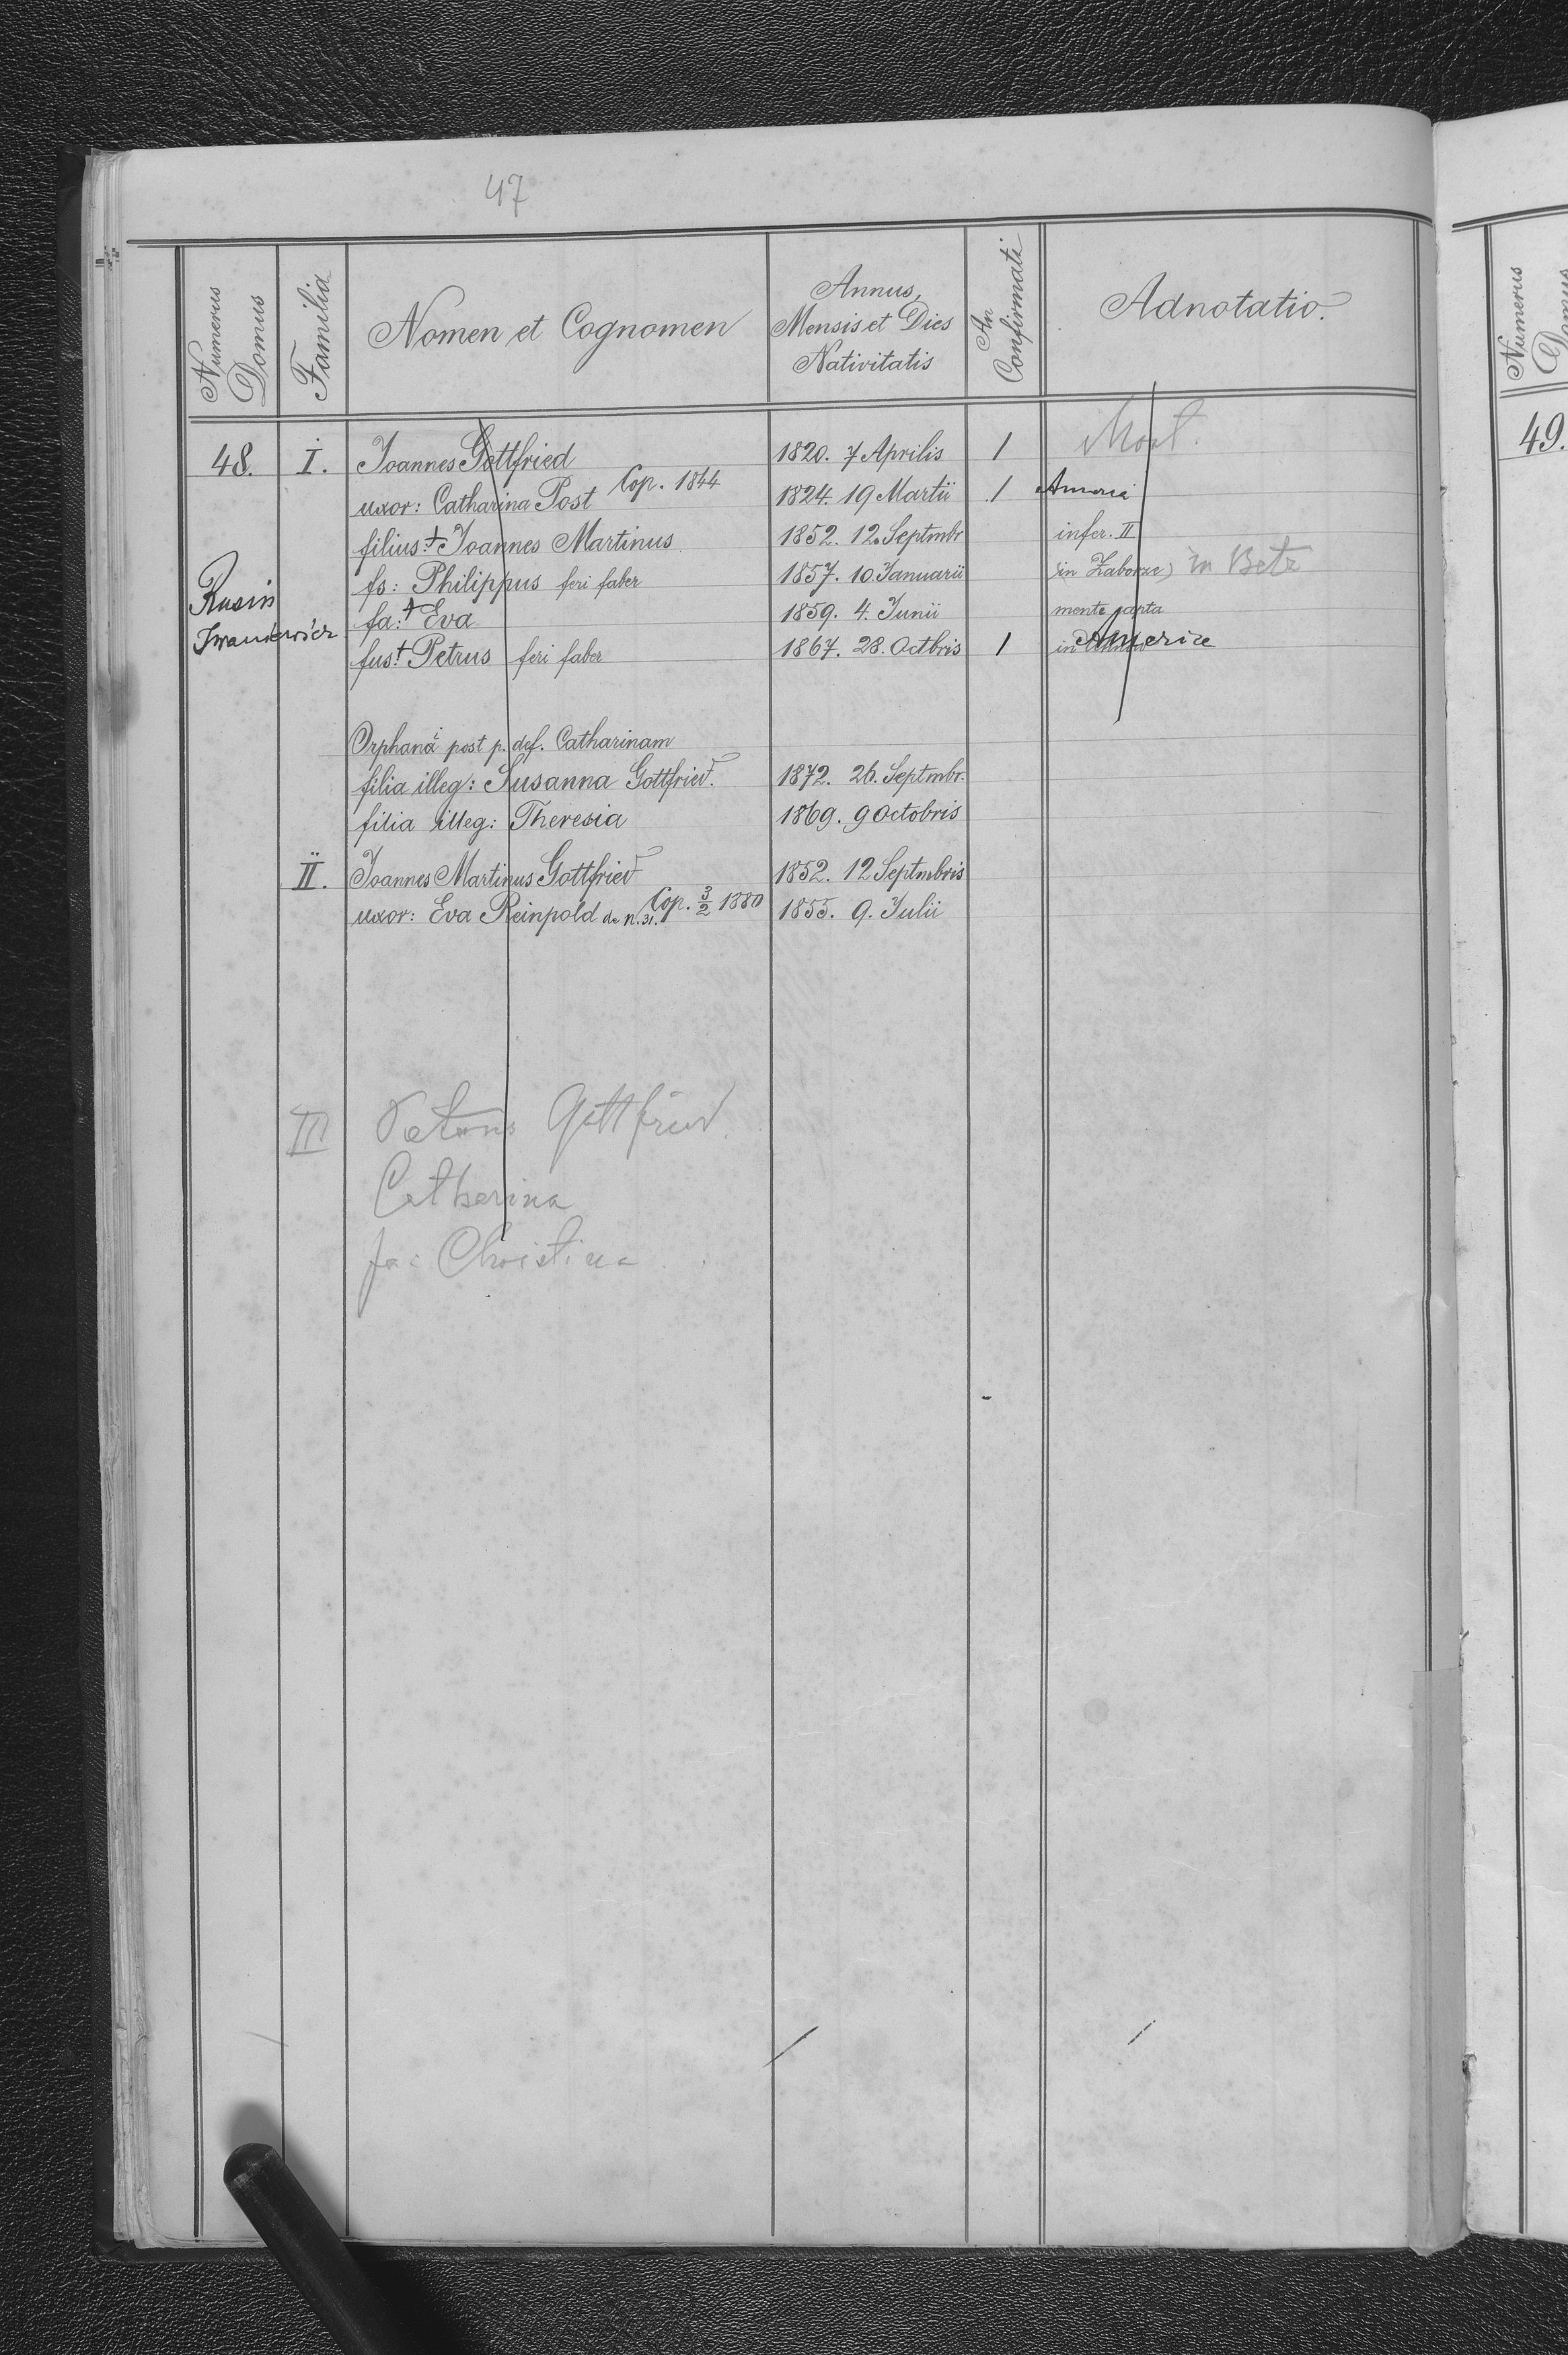 47
Numerus Domus
Familia
Nomen et Cognomen
Annus, Mensis et Dies Nativitatis
An Confirmati
Adnotatio.
48. I. Joannes Gottfried 1820. 7 Aprilis 1 Mort.
uxor: Catharina Post Cop. 1844 1824. 19 Martii 1
filius: + Joannes Martinus 1852. 12. Septmbr infer. II
fs: Philippus feri faber 1857. 10. Januarii (in Zaborze) in Betz
Rusin
fa: + Eva 1859. 4. Junii mente capta
Iwaniewicz
fus + Petrus feri faber 1867. 28. Octbris 1 in Americe
Orphanæ post p. def. Catharinam
filia illeg: Susanna Gottfried. 1872. 26. Septmbr.
filia illeg: Theresia 1869. 9 Octobris
II. Joannes Martinus Gottfried 1852. 12 Septmbris
uxor: Eva Reinpold de N. 31. Cop. 3/2 1880 1855. 9. Julii
III Gottfried
Catherina
fa: Christina
Numerus Domus
49.